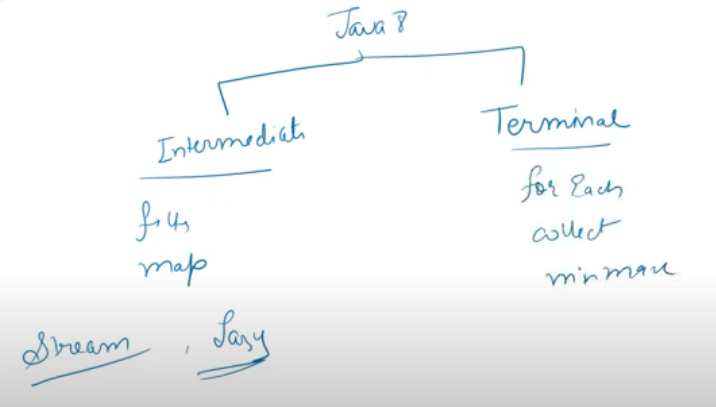 Java 8
Intermediate
Terminal
filter
map
for Each
collect
min max
Stream , Lazy